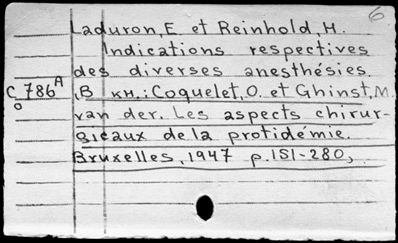 6
Laduron, E et Reinhold, H.
Indications respectives
des diverses anesthésies.
C 786 A
o
(В кн.: Coquelet, O. et Ghinst, M.
van der. Les aspects chirur-
gicaux de la protidémie.
Bruxelles, 1947 p. 151-280,